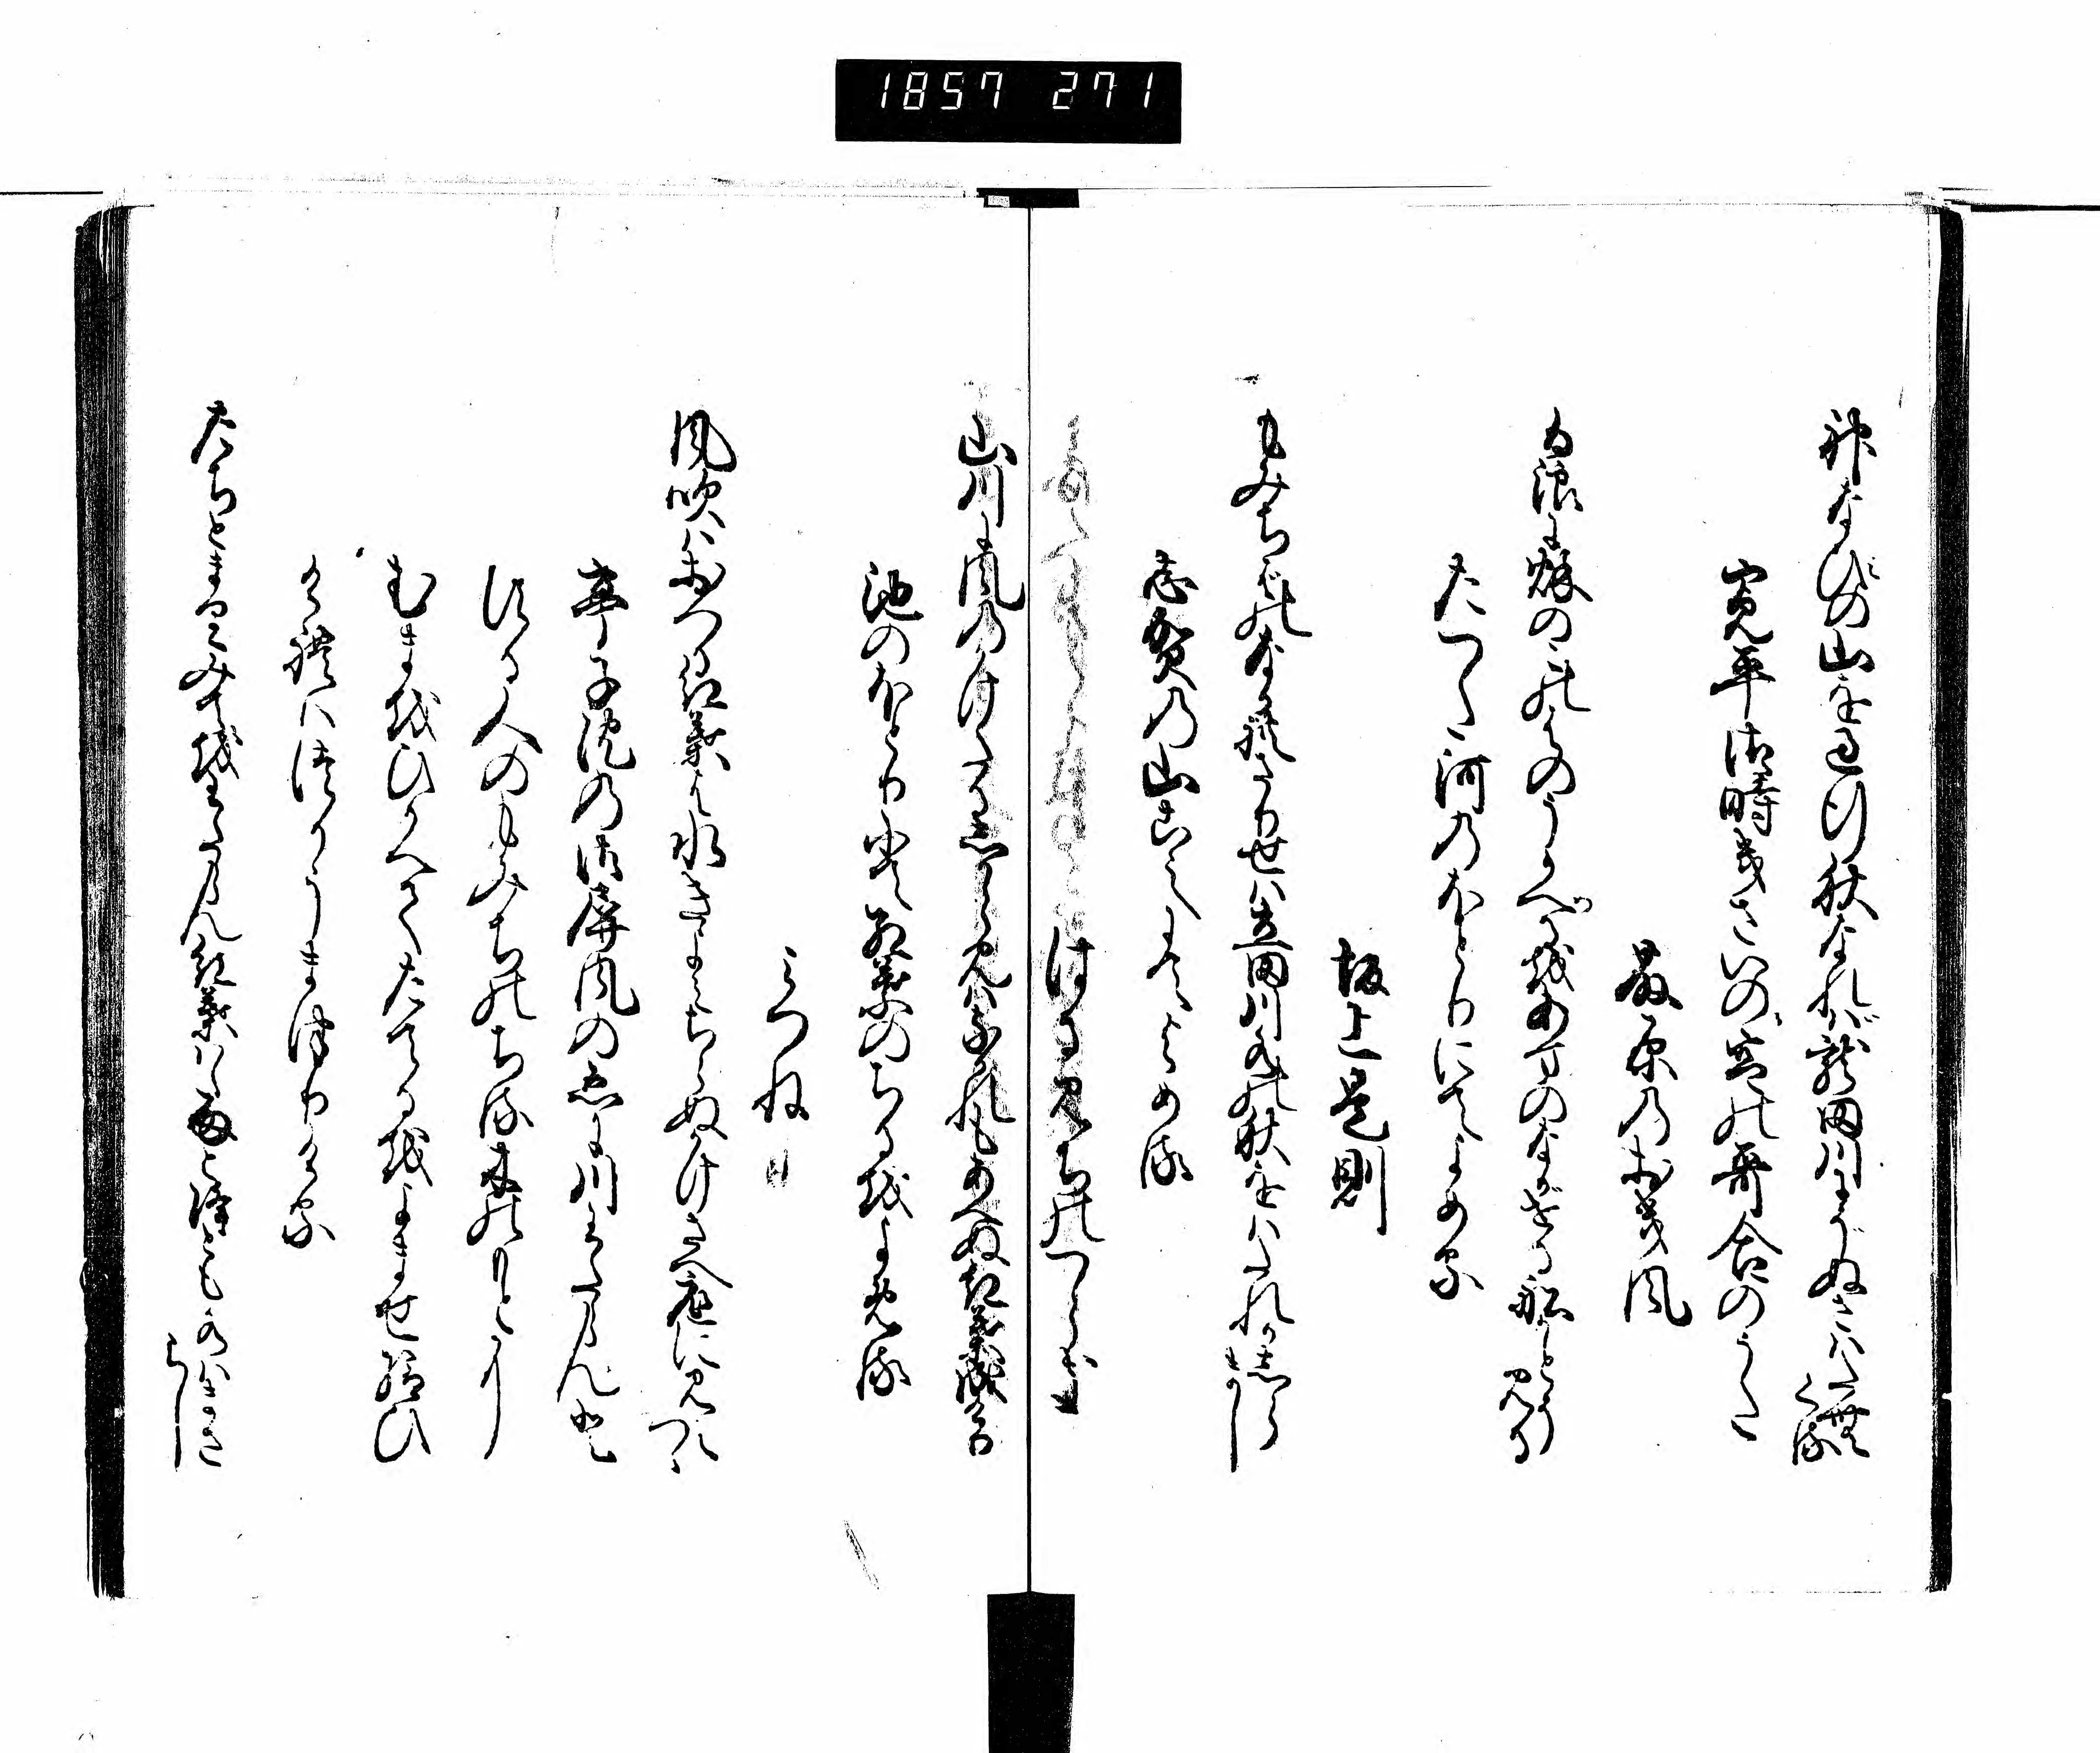 1857 271
神なびの山を過行秋なれば龍田川にぞぬさはたむくる
寛平御時きさいの宮の哥合のうた
藤原のおき風
白浪に秋のこのはのうかべるをあまのながせる船かとぞ見る
たつた河のほとりにてよめる
坂上是則
もみぢばのながれざりせは立田川水の秋をはたれかしらまし
志賀の山こえにてよめる
はるみちのつらき
山川に風のかけたるしからみはながれもあへぬ紅葉成けり
池のほとりにて紅葉のちるをよめる
みつね
風吹はおつる紅葉は水きよみちらぬかけさへ底に見えつゝ
亭子院の御屏風のゑに川わたらんと
する人のもみちのちる木のもとに
むまをひかへてたてるをよませ給ひ
けれはつかうまつりける
たちとまりみてをわたらん紅葉はゝ雨と降とも水はまさらし